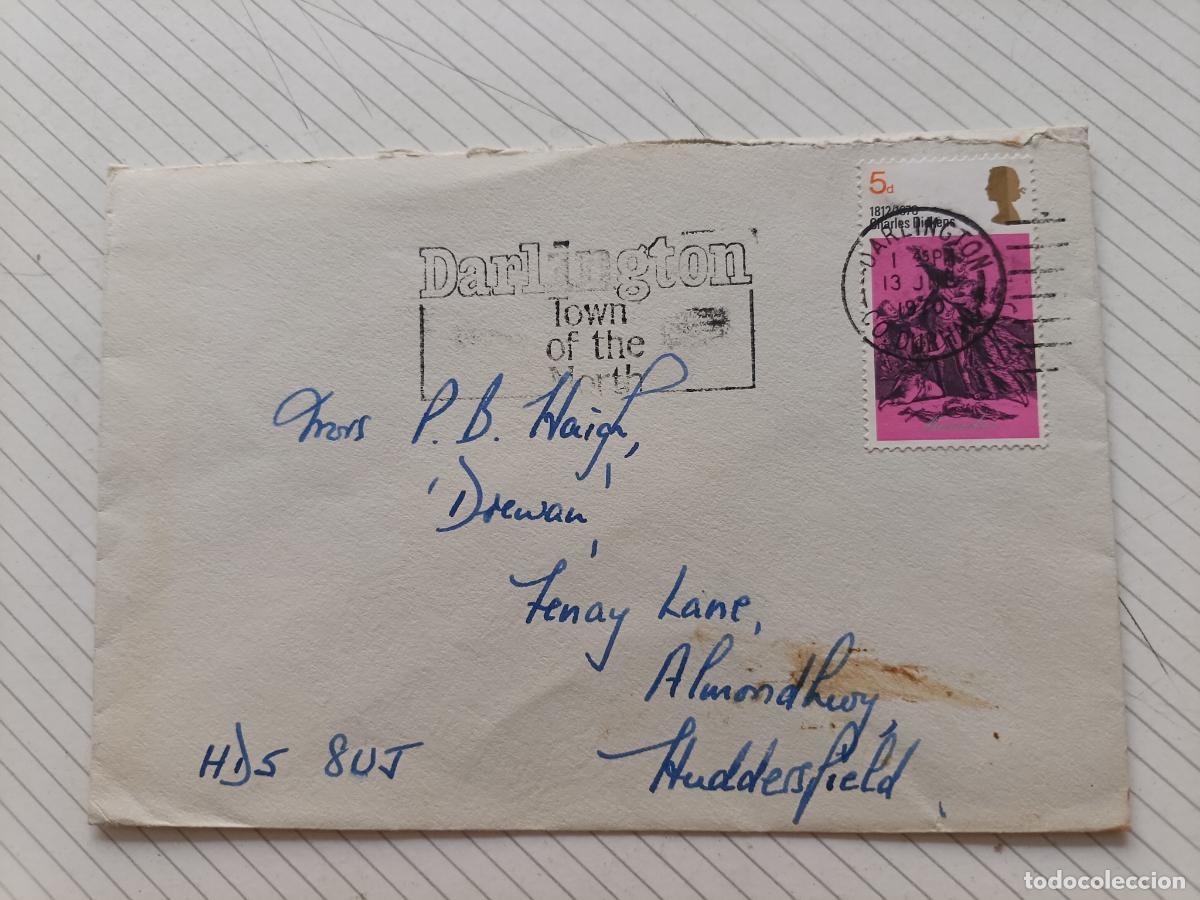 5d
1812/1870
Charles Dickens
DARLINGTON
1 45PM
13 J
1970
CO. DURHAM
Darlington
Town
of the
North
Mrs P. B. Haigh,
'Drewan',
Fenay Lane,
Almondbury,
Huddersfield.
HD5 8UJ
todocoleccion